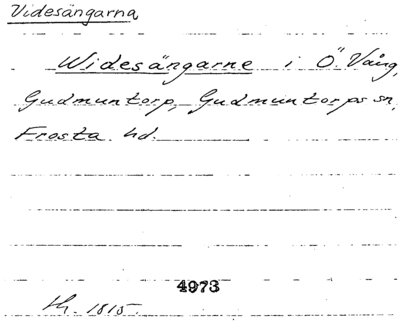 Videsängarna
Widesängarne i Ö. Vång,
Gudmuntorp, Gudmuntorps sn,
Frosta hd.
4973
th. 1815.